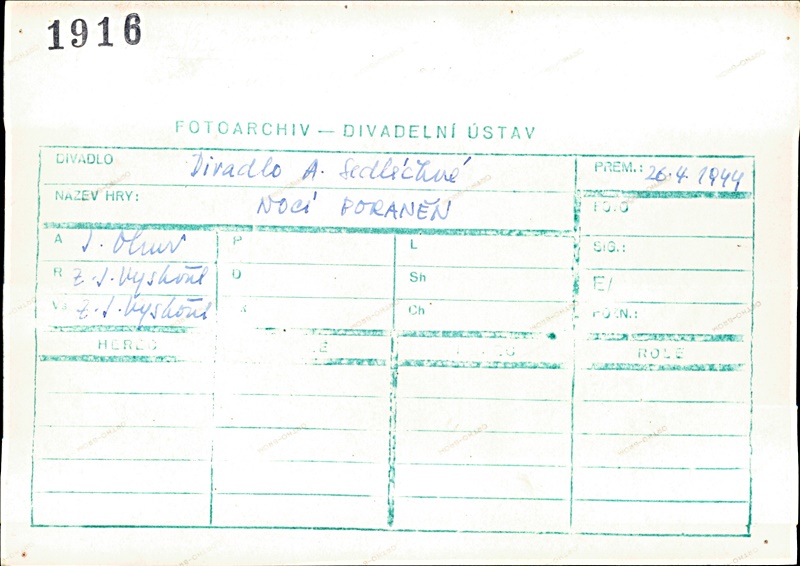 1916
FOTOARCHIV — DIVADELNÍ ÚSTAV
DIVADLO Divadlo A. Sedláčkové PREM.: 26.4. 1944
NÁZEV HRY: NOCÍ PORANĚN FOTO
A J. P L SIG.:
R Z. J. Vyskočil D Sh E/
Z. J. Vyskočil Ch POZN.:
HEREC ROLE